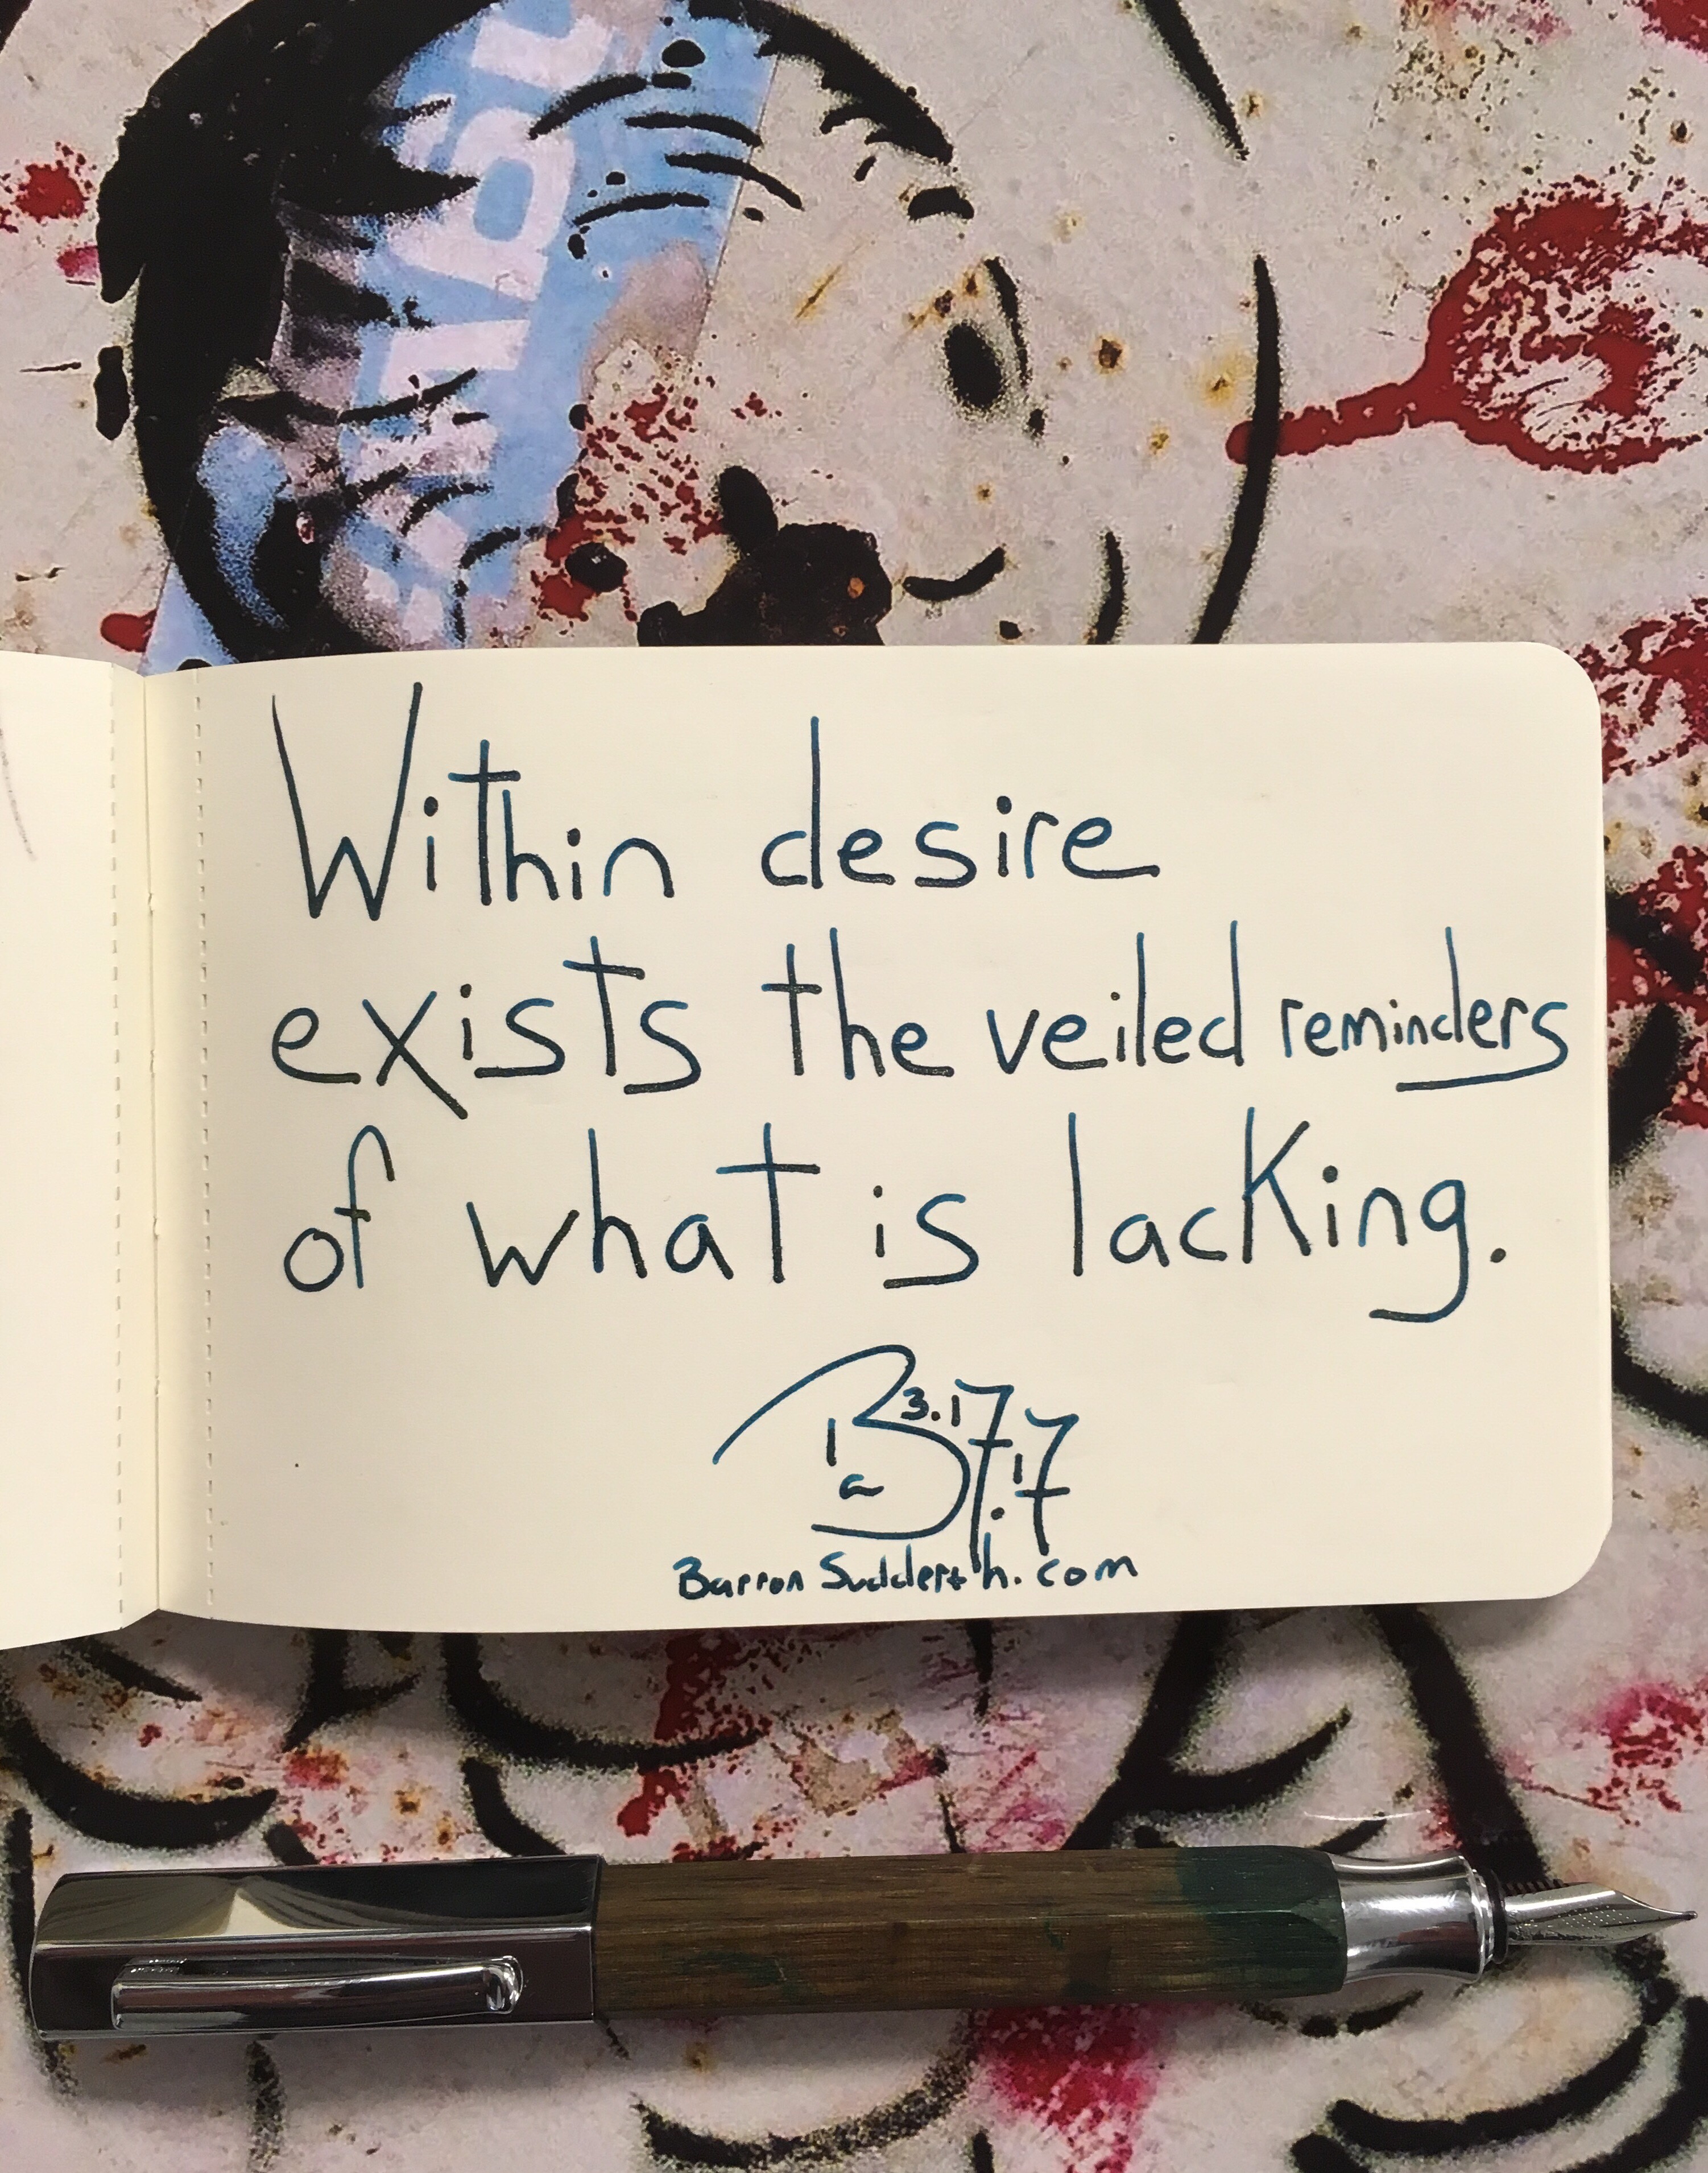 Within desire
exists the veiled reminders
of what is lacking.
3.17.17
Barron Sudderth.com